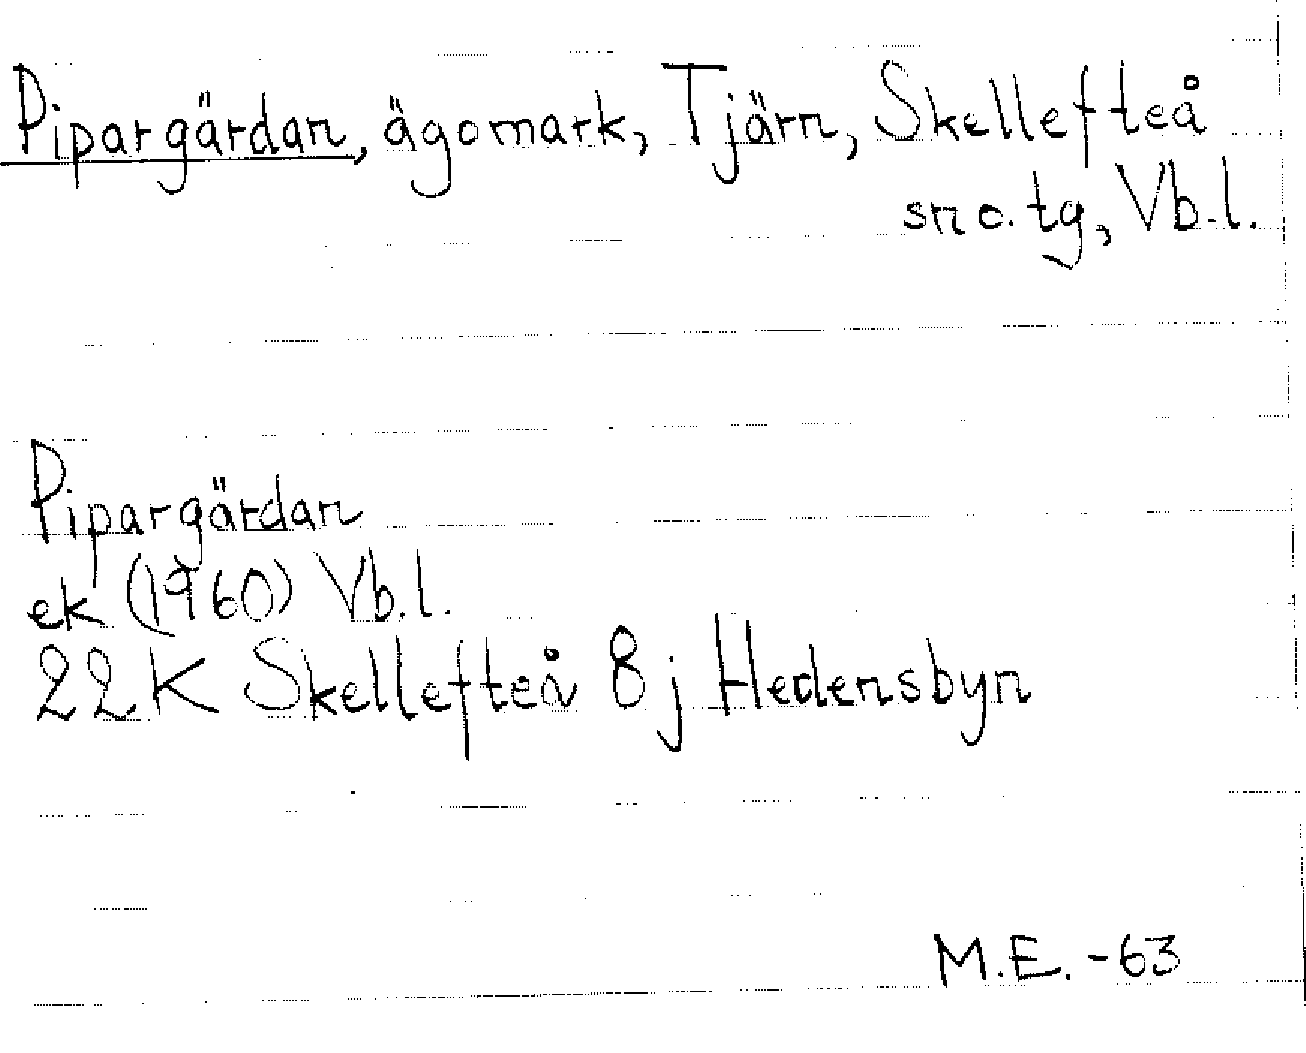 Pipargärdan, ägomark, Tjärn, Skellefteå
sn o. tg, Vb.l.
Pipargärdan
ek (1960) Vb.l.
22K Skellefteå 8j Hedensbyn
M.E. -63